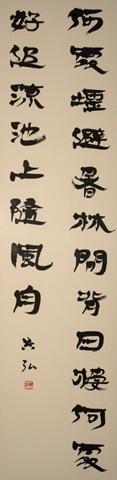 何處堪避暑林間背日樓何處
好追涼池上隨風舟
弘